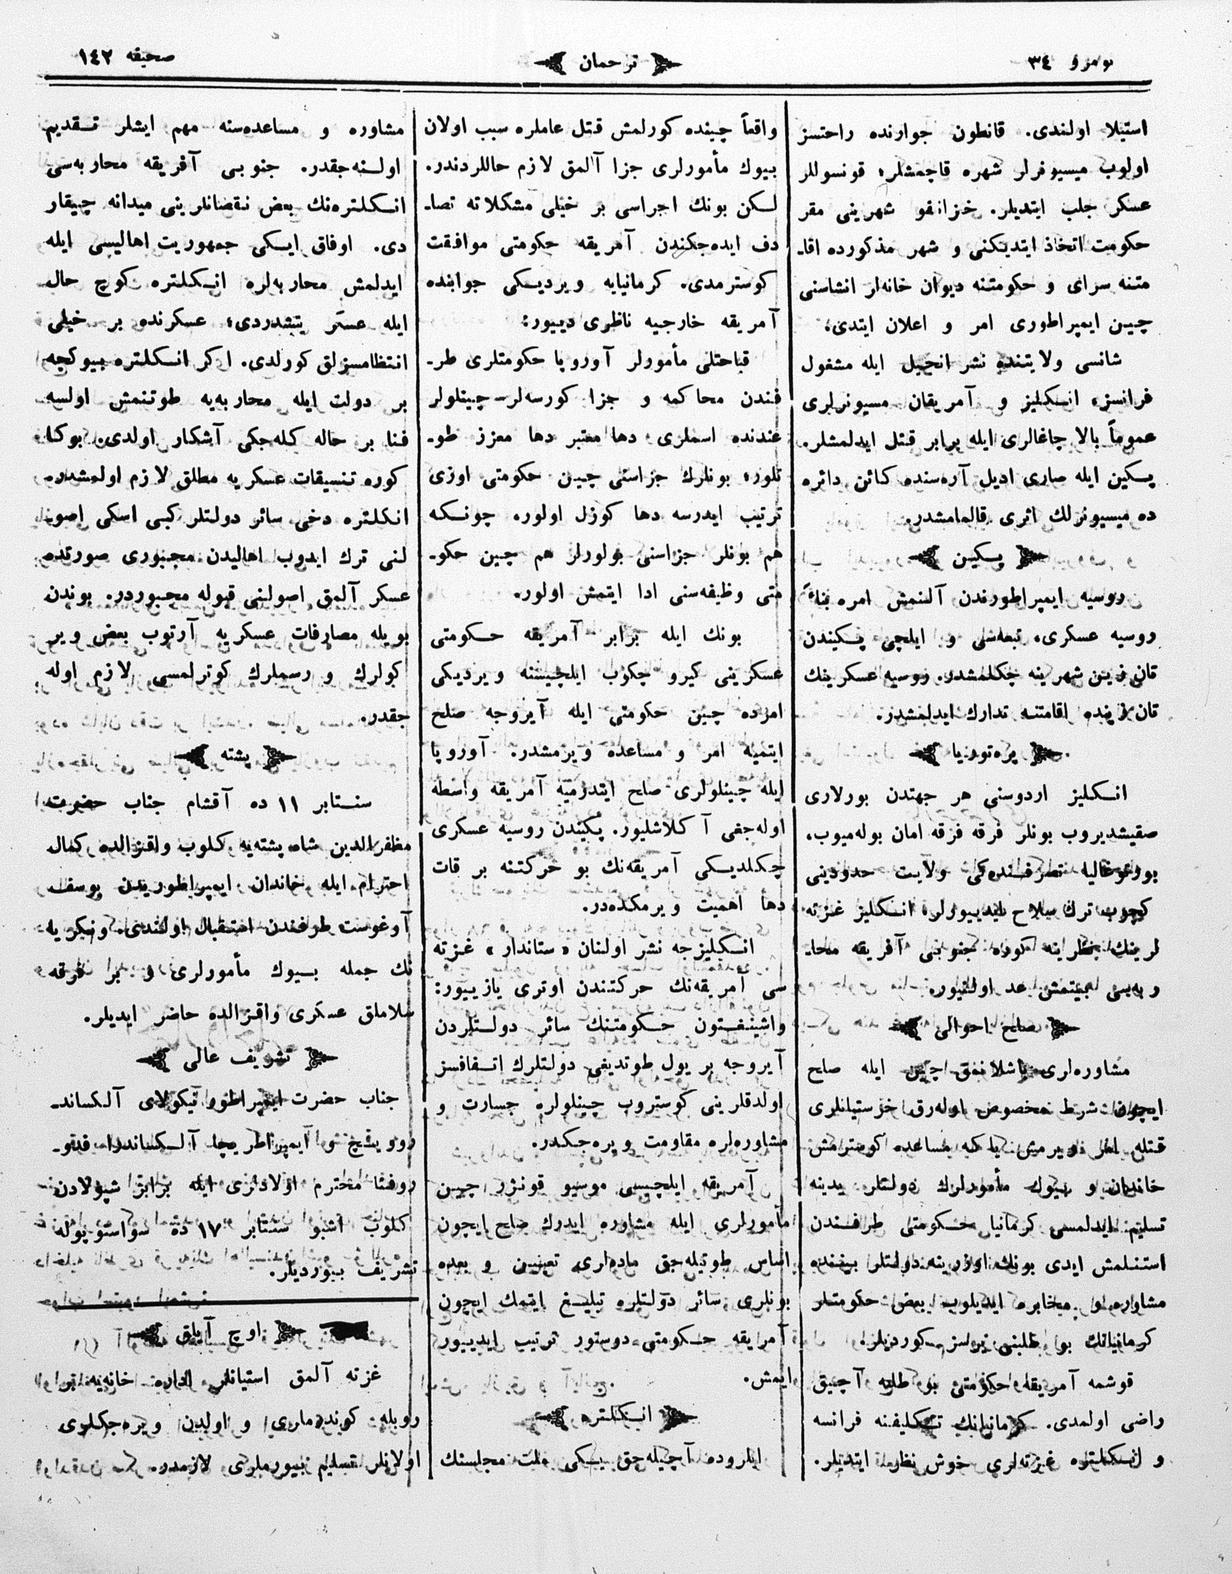 نومرو ٣٤
ترجمان
صحیفه ١٤٢
استیلا اولندی. قانطون جوارنده راحتسز
اولوب میسیونرلر شهره قاچمشلر؛ قونسوللر
عسکر جلب ایتدیلر. خزانفو شهرینی مقر
حکومت اتخاذ ایتدیکنی و شهر مذکورده اقا-
متنه سرای و حکومتنه دیوان خانه‌لر انشاسنی
چین ایمپراطوری امر و اعلان ایتدی؛
شانسی ولایتنده نشر انجیل ایله مشغول
فرانسز، انکلیز و آمریقان مسیونرلری
عموماً بالا چاغالری ایله برابر قتل ایدلمشلر.
پکین ایله صاری ادیل آره‌سنده کائن دائره
ده میسیونرلك اثری قالمامشدر.
پکین
روسیه ایمپراطورندن آلنمش امره بناءً
روسیه عسکری، تبعه‌سی و ایلچی پکیندن
تان زین شهرینه چکلمشدر. روسیه عسکرینك
تان زینده اقامتنه تدارك ایدلمشدر.
پره‌توریا
انکلیز اردوسی هر جهتدن بورلاری
صقیشدیروب بونلر فرقه فرقه امان بوله‌میوب،
پورتوغالیا تصرفنده‌کی ولایت حدودینی
کچوب ترك سلاح ایدیورلر. انکلیز غزته
لرینك نظرینه کوره جنوبی آفریقه محا-
ربه‌سی بیتمش عد اولنیور.
صلح احوالی
مشاوره‌لری باشلانمق ایچین ایله صلح
ایچون شرط مخصوص اوله‌رق خرستیانلری
قتله امر ویرمش یاکه مساعده کوسترمش
خاندان و بیوك مأمورلرك دولتلر یدینه
تسلیم ایدلمسی کرمانیا حکومتی طرفندن
استنلمش ایدی بونك اوزرینه دولتلر بیننده
مشاوره و مخابره ایدیلوب بعض حکومتلر
کرمانیانك بو طلبنی یرسز کوردیلر.
قوشمه آمریقا حکومتی بو طلبه آچیق
راضی اولمدی. کرمانیانك تکلیفنه فرانسه
و انکلتره غزته‌لری خوش نظر ایتدیلر.
واقعاً چینده کورلمش قتل عاملره سبب اولان
بیوك مأمورلری جزا آلمق لازم حاللردندر.
لکن بونك اجراسی بر خیلی مشکلاته تصا-
دف ایده‌جکندن آمریقه حکومتی موافقت
کوسترمدی. کرمانیایه ویردیکی جوابنده
آمریقه خارجیه ناظری دییور:
قباحتلی مأمورلر آوروپا حکومتلری طر-
فندن محاکمه و جزا کورسه‌لر چینلولر
عندنده اسملری دها معتبر دها معزز طو-
تلور؛ بونلرك جزاسنی چین حکومتی اوزی
ترتیب ایدرسه دها کوزل اولور. چونکه
هم بونلر جزاسنی بولورلر هم چین حکو-
متی وظیفه‌سنی ادا ایتمش اولور.
بونك ایله برابر آمریقه حکومتی
عسکرینی کیرو چکوب ایلچیسنه ویردیکی
امرده چین حکومتی ایله آیروجه صلح
ایتمیه امر و مساعده ویرمشدر. آوروپا
ایله چینلولری صلح ایتدرمیه آمریقه واسطه
اوله‌جغی آکلاشلیور. پکیندن روسیه عسکری
چکلدیکی آمریقه‌نك بو حرکتنه بر قات
دها اهمیت ویرمکده‌در.
انکلیزجه نشر اولنان «ستاندار» غزته
سی آمریقه‌نك حرکتندن اوتری یازییور:
واشینغتون حکومتنك سائر دولتلردن
آیروجه بر یول طوتدیغی دولتلرك اتفاقسز
اولدقلرینی کوستروب چینلولره جسارت و
مشاوره‌لره مقاومت ویره‌جکدر.
آمریقه ایلچیسی موسیو قونژر چین
مأمورلری ایله مشاوره ایدرك صلح ایچون
اساس طوتیله‌جق ماده‌لری تعیین و بعده
بونلری سائر دولتلره تبلیغ ایتمك ایچون
آمریقه حکومتی دوستور ترتیب ایدییور
ایمش.
انکلتره
ایلروده آچیله‌جق یکی ملت مجلسنك
مشاوره و مساعده‌سنه مهم ایشلر تقدیم
اولنه‌جقدر. جنوبی آفریقه محاربه‌سی
انکلتره‌نك بعض نقصانلرینی میدانه چیقار
دی. اوفاق ایکی جمهوریت اهالیسی ایله
ایدلمش محاربه‌لره انکلتره کوچ حال
ایله عسکر یتشدردی؛ عسکرنده بر خیلی
انتظامسزلق کورلدی. اکر انکلتره بیوکچه
بر دولت ایله محاربه‌یه طوتنمش اولسه
فنا بر حاله کله‌جکی آشکار اولدی. بوکا
کوره تنسیقات عسکریه مطلق لازم اولمشدر.
انکلتره دخی سائر دولتلر کبی اسکی اصو-
لنی ترك ایدوب اهالیدن مجبوری صورتده
عسکر آلمق اصولنی قبوله مجبوردر. بوندن
بویله مصارفات عسکریه آرتوب بعض ویر
کولرك و رسملرك کوترلمسی لازم اوله
جقدر.
پشته
سنتابر ١١ ده آقشام جناب حضرت
مظفرالدین شاه پشته‌یه کلوب واقزالده کمال
احترام ایله خاندان ایمپراطوریدن یوسف
آوغوست طرفندن استقبال اولندی. ونکریه
نك جمله بیوك مأمورلری و بر فرقه
سلاملق عسکری واقزالده حاضر ایدیلر.
تشریف عالی
جناب حضرت ایمپراطور نیکولای آلکساند-
روویچ و ایمپراطریچا آلکساندرا فئو-
روفنا محترم اولادلری ایله برابر شپولادن
کلوب اشبو سنتابر ١٧ ده سواستوپوله
تشریف بیوردیلر.
اوچ آیلق
غزته آلمق استیانلر اداره خانه‌یه بر
روبله کوندرمالری و اولدن ویره‌جکلری
اولانلر تسلیم بیورملری لازمدر.